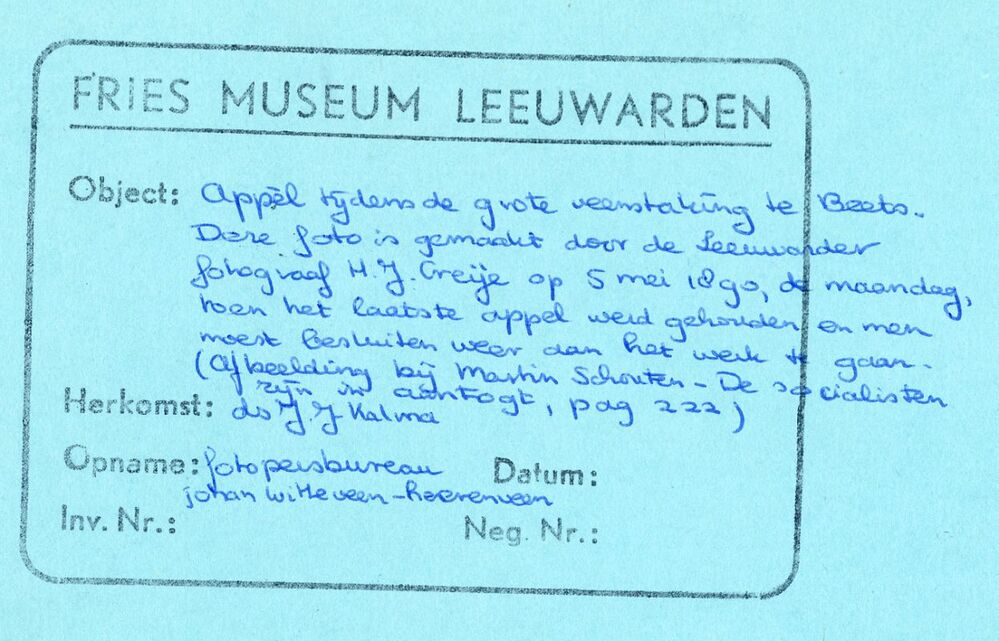 FRIES MUSEUM LEEUWARDEN
Object: Appèl tijdens de grote veenstaking te Beets.
Deze foto is gemaakt door de Leeuwarder
fotograaf H.J. Creije op 5 mei 1890, de maandag,
toen het laatste appel werd gehouden en men
moest besluiten weer aan het werk te gaan.
(Afbeelding bij Martin Schouten - De socialisten
zijn in aantogt, pag 222)
Herkomst: ds J.J Kalma
Opname: fotopersbureau Datum:
johan witteveen - heerenveen
Inv. Nr.: Neg. Nr.: